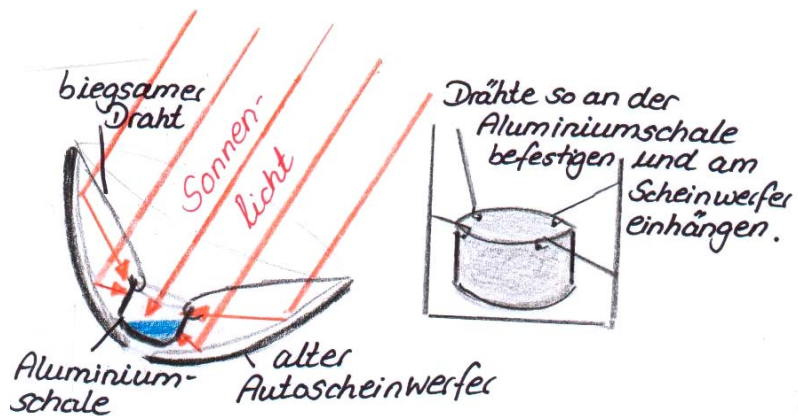 biegsamer
Draht
Sonnen-
licht
Aluminium-
schale
alter
Autoscheinwerfer
Drähte so an der
Aluminiumschale
befestigen und am
Scheinwerfer
einhängen.